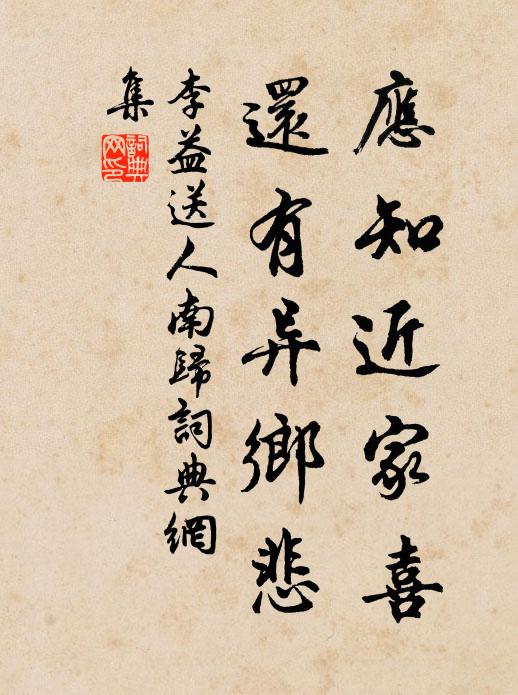 應知近家喜
還有异鄉悲
李益送人南歸詞典網
集
詞典
网印